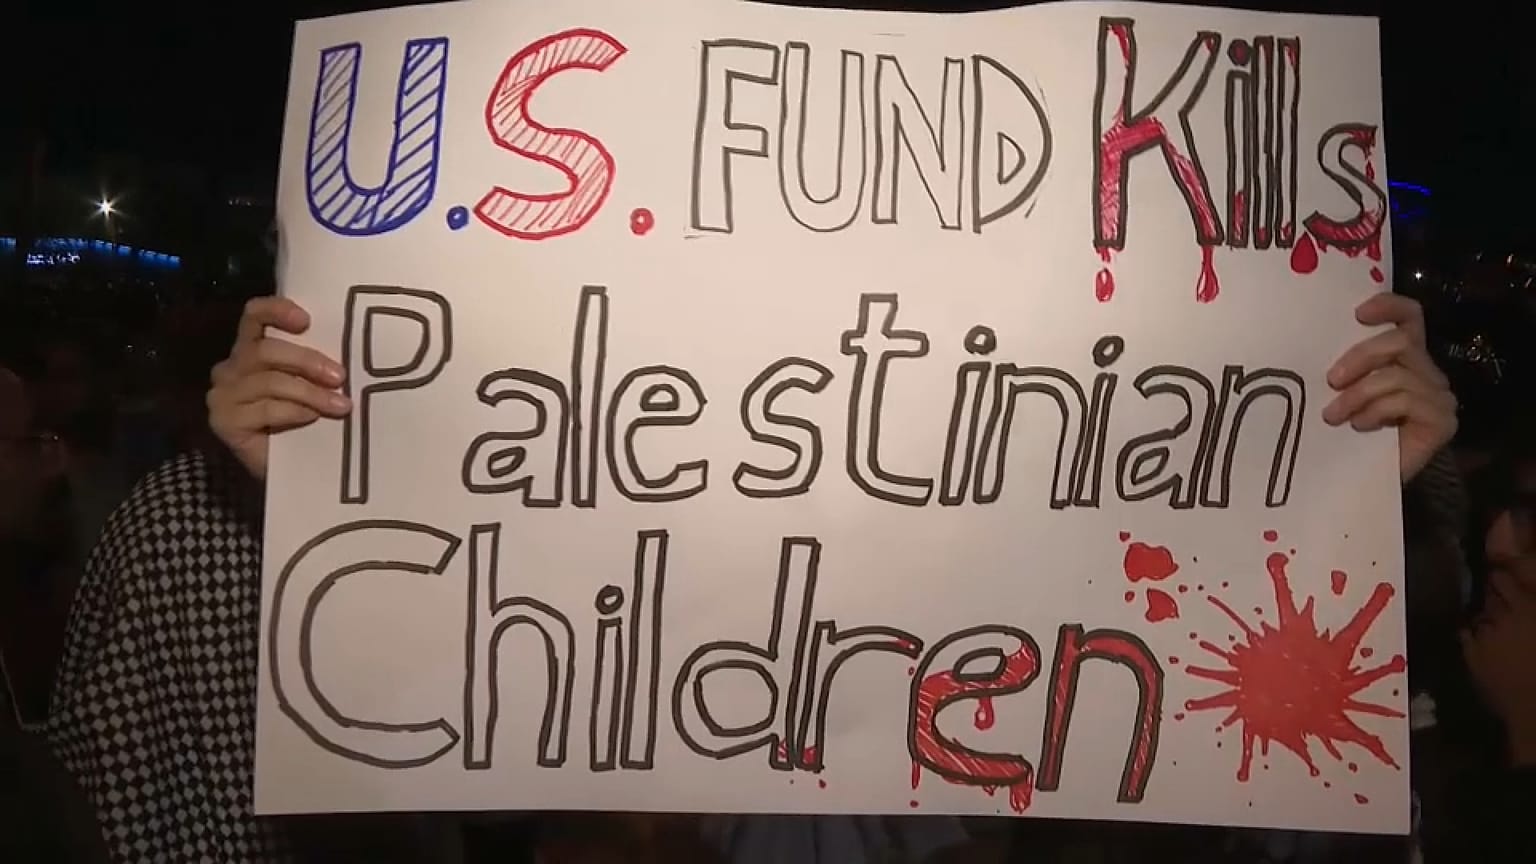 U.S. FUND Kills
Palestinian
Children